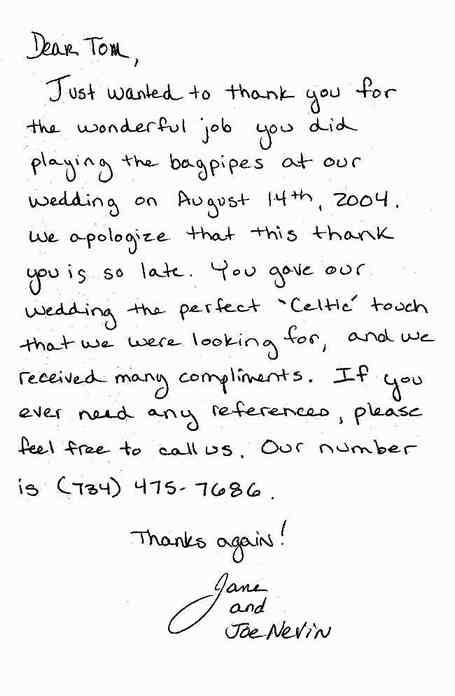 Dear Tom,
Just wanted to thank you for
the wonderful job you did
playing the bagpipes at our
wedding on August 14th, 2004.
We apologize that this thank
you is so late. You gave our
wedding the perfect "Celtic" touch
that we were looking for, and we
received many compliments. If you
ever need any references, please
feel free to call us. Our number
is (734) 475-7686.
Thanks again!
Jane
and
Joe Nevin